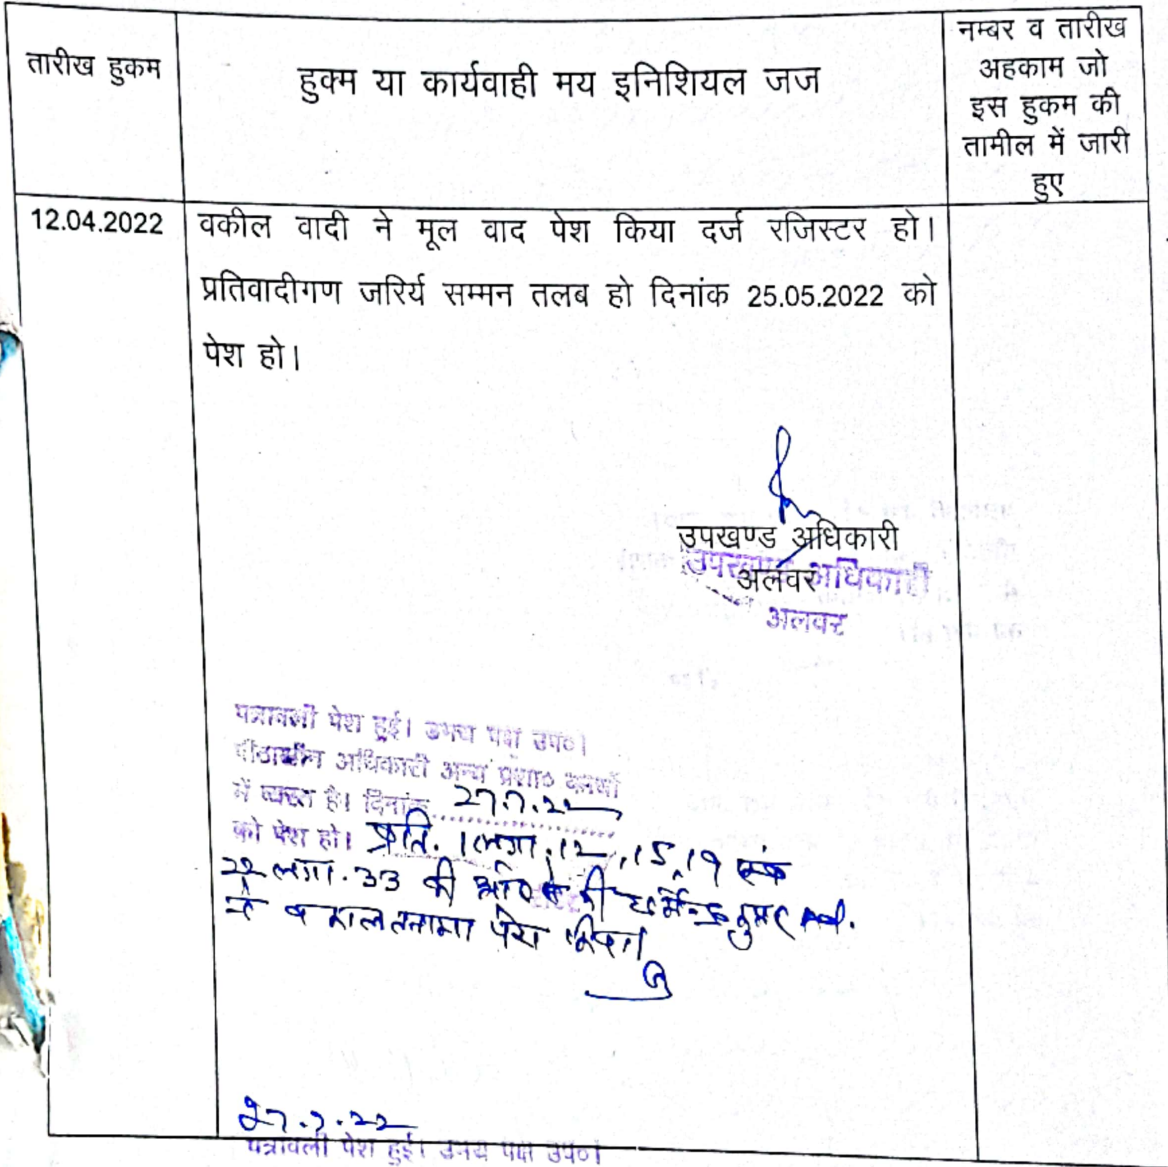 तारीख हुकम
हुक्म या कार्यवाही मय इनिशियल जज
नम्बर व तारीख
अहकाम जो
इस हुकम की
तामील में जारी
हुए
12.04.2022
वकील वादी ने मूल वाद पेश किया दर्ज रजिस्टर हो।
प्रतिवादीगण जरिर्य सम्मन तलब हो दिनांक 25.05.2022 को
पेश हो।
उपखण्ड अधिकारी
अलवर
उपखण्ड अधिकारी
अलवर
पत्रावली पेश हुई। उभय पक्ष उप०।
पीठासीन अधिकारी अन्य प्रशा० कार्यों
में व्यस्त है। दिनांक 27.7.22
को पेश हो। प्रति. 1 लगा. 12, 15, 19
22 लगा. 33 की ओर से श्री धर्मेन्द्र कुमार Ad.
ने वकालतनामा पेश किया।
27.7.22
पत्रावली पेश हुई। उभय पक्ष उप०।